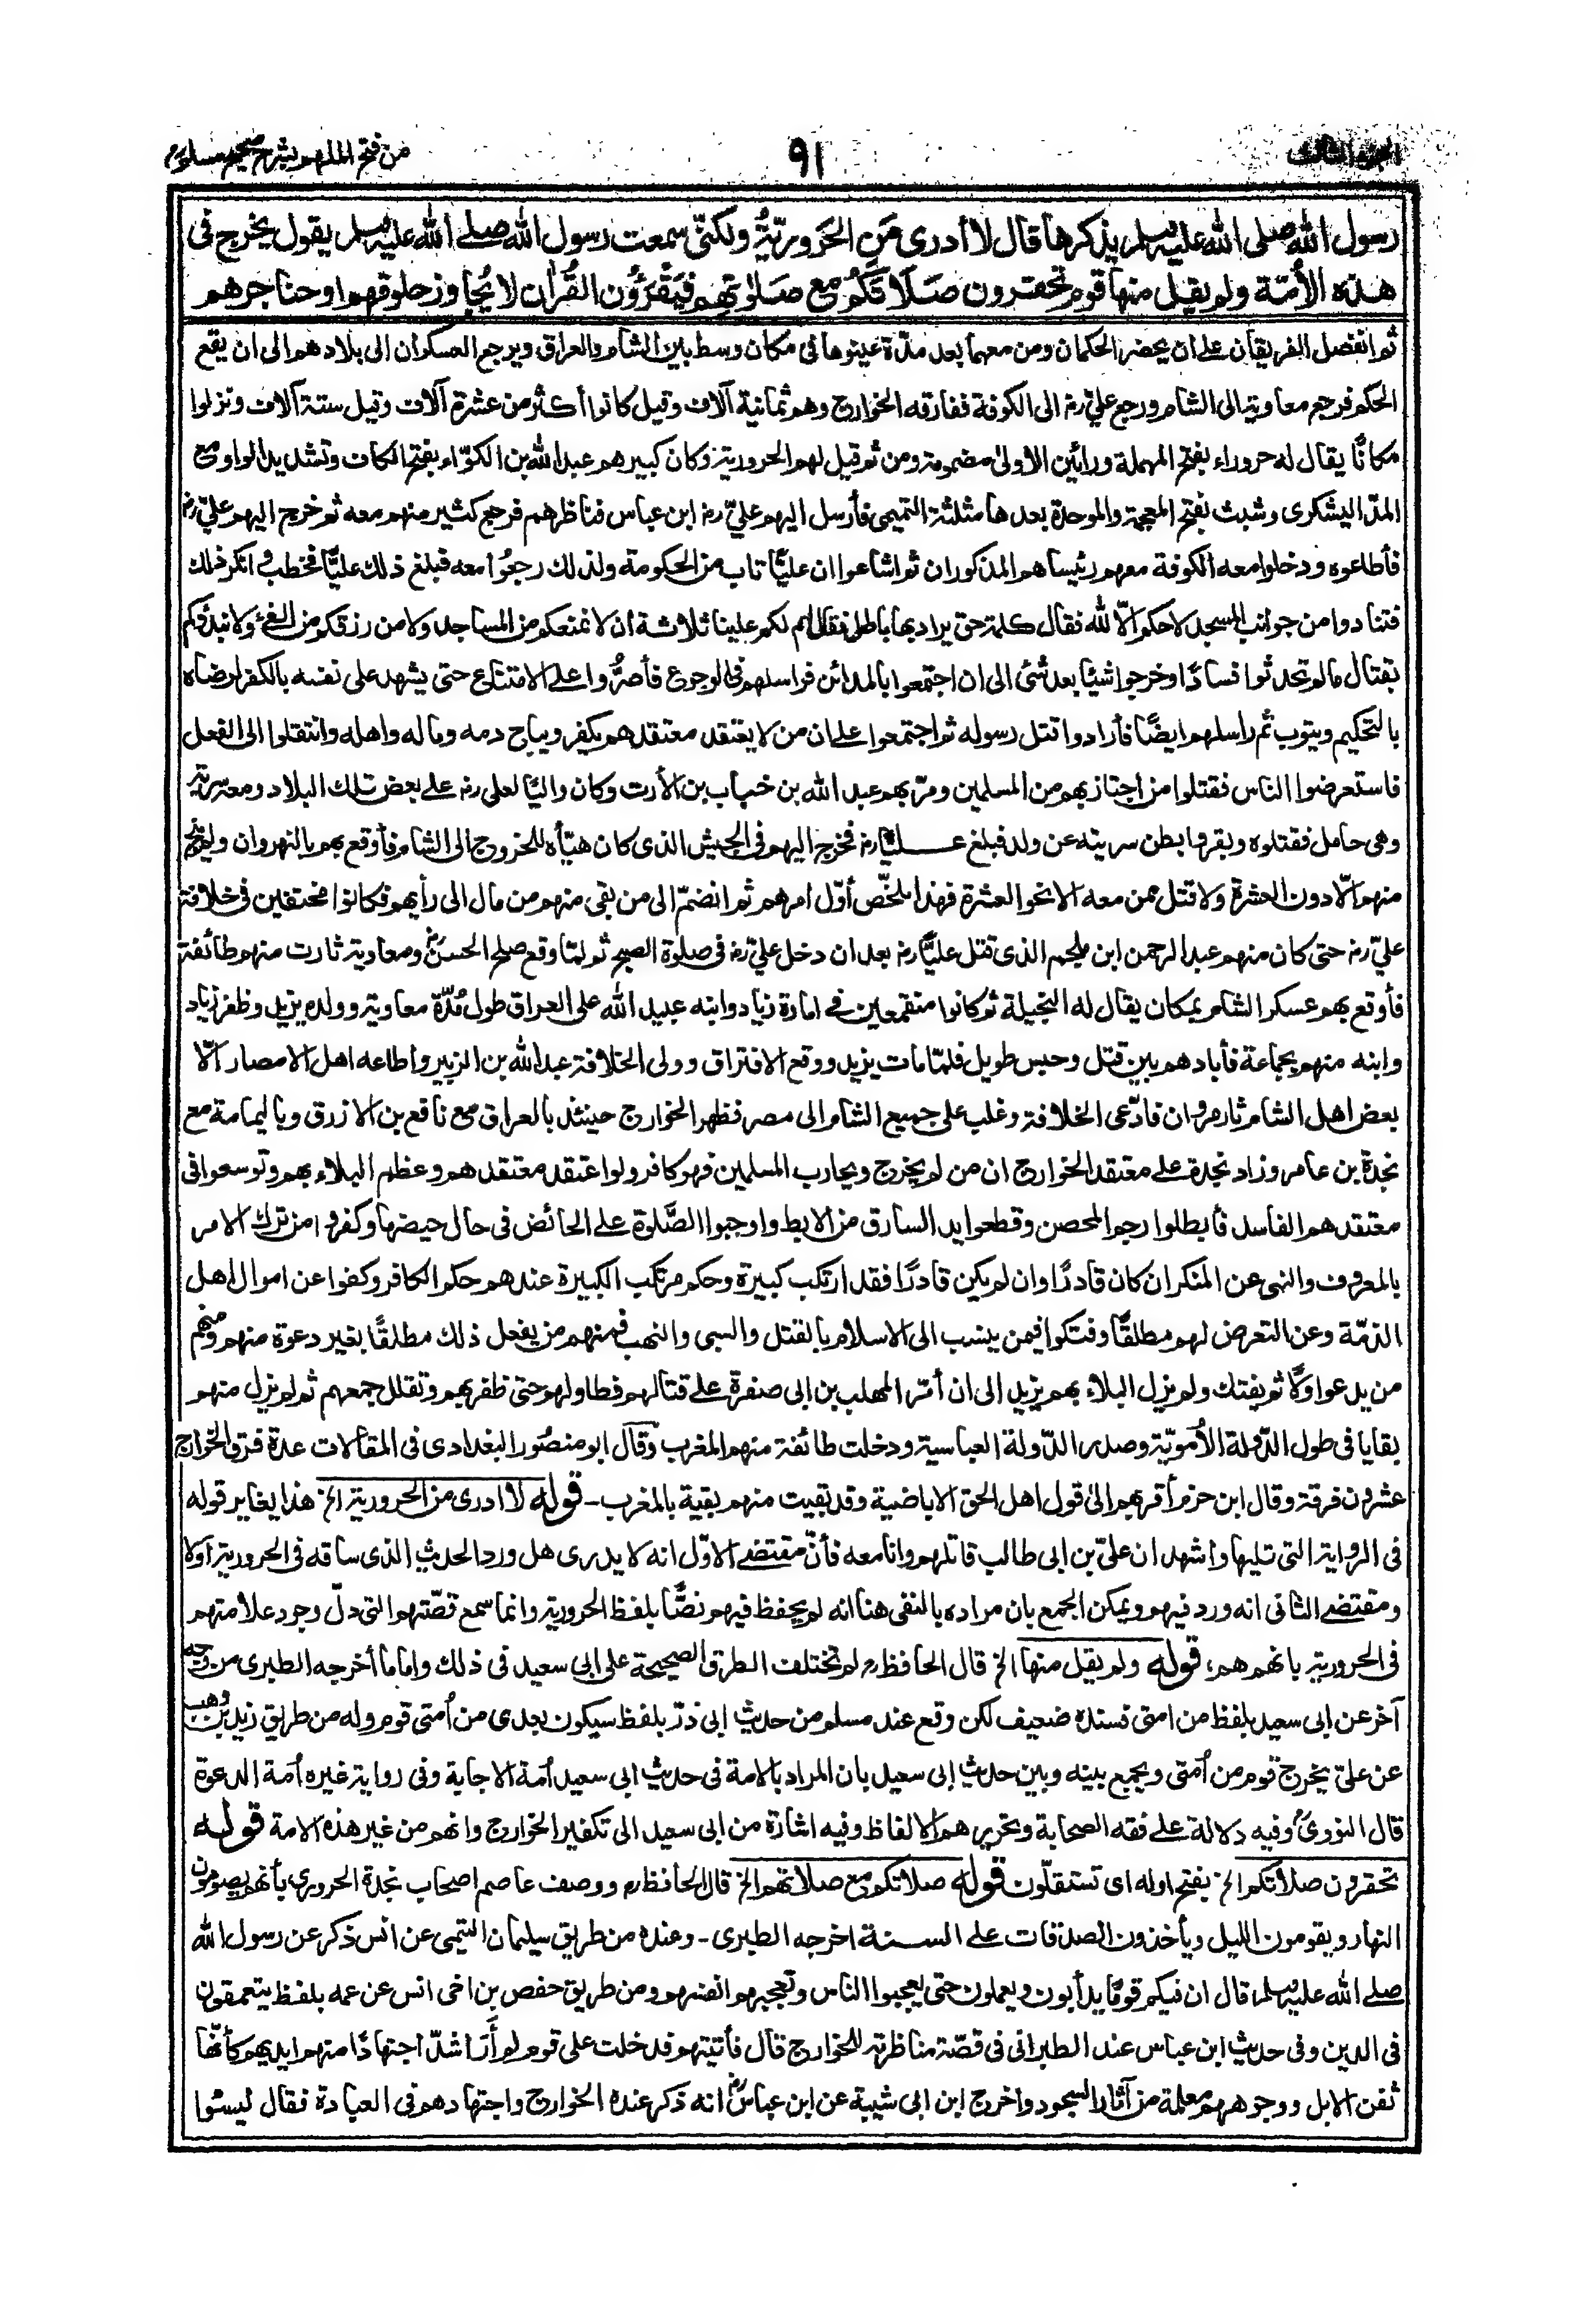 الجزء الثالث
٩١
من فتح الملهم بشرح صحيح مسلم
رسول الله صلى الله عليه وسلم يذكرها قال لا أدرى مَنِ الحَروريّةُ ولكنّى سمعت رسول الله صلى الله عليه وسلم يقول يخرج فى
هذه الأمّة ولم يقل منها قوم تحقرون صَلَاتَكُم مع صَلٰوتِهم فيَقْرَؤُن القُرآن لا يُجاوز حلوقهم او حناجرهم
ثم انفصل الفريقان على ان يحضر الحكمان ومن معهما بعد مدّة عينوها فى مكان وسط بين الشام والعراق ويرجع العسكران الى بلادهم الى ان يقع
الحكم فرجع معاوية الى الشام ورجع علىّ رض الى الكوفة ففارقه الخوارج وهم ثمانية آلاف وقيل كانوا أكثر من عشرة آلاف وقيل ستة آلاف ونزلوا
مكانًا يقال له حروراء بفتح المهملة ورائين الاولىٰ مضمومة ومن ثم قيل لهم الحرورية وكان كبيرهم عبد الله بن الكوّاء بفتح الكاف وتشديد الواو مع
المدّ اليشكرى وشبث بفتح المعجمة والموحدة بعدها مثلثة التميمى فأرسل اليهم علىّ رض ابن عباس فناظرهم فرجع كثير منهم معه ثم خرج اليهم علىّ رض
فأطاعوه ودخلوا معه الكوفة معهم رئيساهم المذكوران ثم اشاعوا ان عليًّا تاب من الحكومة ولذلك رجعوا معه فبلغ ذلك عليًّا فخطب و انكر ذلك
فتنادوا من جوانب المسجد لا حكم الّا لله فقال كلمة حق يراد بها باطل فقال لهم لكم علينا ثلاثة ان لا نمنعكم من المساجد ولا من رزقكم من الفئ ولا نبدؤكم
بقتال ما لم تحدثوا فسادًا وخرجوا شيئا بعد شئ الى ان اجتمعوا بالمدائن فراسلهم فى الرجوع فأصرُّوا على الامتناع حتى يشهد على نفسه بالكفر لرضاه
بالتحكيم ويتوب ثم راسلهم ايضًا فأرادوا قتل رسوله ثم اجتمعوا على ان من لا يعتقد معتقدهم يكفر ويباح دمه وماله واهله وانتقلوا الى الفعل
فاستعرضوا الناس فقتلوا من اجتاز بهم من المسلمين ومرّ بهم عبد الله بن خباب بن الأرت وكان واليًا لعلى رض على بعض تلك البلاد ومعه سريّة
وهى حامل فقتلوه وبقروا بطن سريته عن ولد فبلغ عليًّا رض فخرج اليهم فى الجيش الذى كان هيّأه للخروج الى الشام فأوقع بهم بالنهروان ولم ينج
منهم الّا دون العشرة ولا قتل ممن معه الا نحو العشرة فهذا ملخّص أوّل امرهم ثم انضمّ الى من بقى منهم من مال الى رأيهم فكانوا مختفين فى خلافة
علىّ رض حتى كان منهم عبد الرحمن ابن ملجم الذى قتل عليًّا رض بعد ان دخل علىّ رض فى صلوة الصبح ثم لمّا وقع صلح الحسن رض ومعاوية ثارت منهم طائفة
فأوقع بهم عسكر الشام بمكان يقال له النخيلة ثم كانوا منقمعين فى امارة زياد وابنه عبيد الله على العراق طول مُدّة معاوية وولده يزيد وظفر زياد
وابنه منهم بجماعة فأبادهم بين قتل وحبس طويل فلمّا مات يزيد ووقع الافتراق وولى الخلافة عبد الله بن الزبير واطاعه اهل الامصار الّا
بعض اهل الشام ثار مروان فادّعى الخلافة وغلب على جميع الشام الى مصر فظهر الخوارج حينئذ بالعراق مع نافع بن الازرق وباليمامة مع
نجدة بن عامر وزاد نجدة على معتقد الخوارج ان من لم يخرج ويحارب المسلمين فهو كافر ولو اعتقد معتقدهم وعظم البلاء بهم وتوسعوا فى
معتقدهم الفاسد فأبطلوا رجم المحصن وقطعوا يد السارق من الابط واوجبوا الصَّلوة على الحائض فى حال حيضها وكفروا من ترك الامر
بالمعروف والنهى عن المنكر ان كان قادرًا وان لم يكن قادرًا فقد ارتكب كبيرة وحكم مرتكب الكبيرة عندهم حكم الكافر وكفوا عن اموال اهل
الذمّة وعن التعرض لهم مطلقًا وفتكوا فيمن ينسب الى الاسلام بالقتل والسبى والنهب فمنهم من يفعل ذلك مطلقًا بغير دعوة منهم ومنهم
من يدعو اوّلًا ثم يفتك ولم يزل البلاء بهم يزيد الى ان أمّر المهلب بن ابى صفرة على قتالهم فطاولهم حتى ظفر بهم وتقلل جمعهم ثم لم يزل منهم
بقايا فى طول الدّولة الأُمويّة وصدر الدّولة العباسية ودخلت طائفة منهم المغرب وقال ابو منصُور البغدادى فى المقالات عدة فرق الخوارج
عشرون فرقة وقال ابن حزم أقربهم الىٰ قول اهل الحق الاباضية وقد بقيت منهم بقية بالمغرب ـ قوله لا ادرى من الحرورية الخ هذا يغاير قوله
فى الرواية التى تليها واشهد ان علىّ بن ابى طالب قاتلهم وانا معه فأنّ مقتضى الاوّل انه لا يدرى هل ورد الحديث الذى ساقه فى الحرورية أولا
ومقتضى الثانى انه ورد فيهم ويمكن الجمع بان مراده بالنفى هنا انه لم يحفظ فيهم نصًّا بلفظ الحرورية وانما سمع قصّتهم التى دلّ وجود علامتهم
فى الحرورية بانهم هم، قوله ولم يقل منها الخ قال الحافظ رح لم تختلف الطرق الصحيحة على ابى سعيد فى ذلك واما ما أخرجه الطبرى من وجه
آخر عن ابى سعيد بلفظ من امتى فسنده ضعيف لكن وقع عند مسلم من حديث ابى ذرّ بلفظ سيكون بعدى من اُمتى قوم وله من طريق زيد بن وهب
عن علىّ يخرج قوم من اُمتى ويجمع بينه وبين حديث ابى سعيد بان المراد بالامة فى حديث ابى سعيد اُمة الاجابة وفى رواية غيره اُمة الدعوة
قال النووىّ وفيه دلالة على فقه الصحابة وتحريرهم الالفاظ وفيه اشارة من ابى سعيد الى تكفير الخوارج وانهم من غير هذه الامة قوله
تحقرون صلاتكم الخ بفتح اوله اى تستقلّون قوله صلاتكم مع صلاتهم الخ قال الحافظ رح ووصف عاصم اصحاب نجدة الحرورى بأنهم يصومون
النهار ويقومون الليل ويأخذون الصدقات على السنة اخرجه الطبرى ـ وعنده من طريق سليمان التيمى عن انس ذكر عن رسول الله
صلى الله عليه وسلم قال ان فيكم قومًا يدأبون ويعملون حتى يعجبوا الناس وتعجبهم انفسهم ومن طريق حفص بن اخى انس عن عمه بلفظ يتعمقون
فى الدين وفى حديث ابن عباس عند الطبرانى فى قصّة مناظرته للخوارج قال فأتيتهم فدخلت على قوم لم أَرَ اشدّ اجتهادًا منهم ايديهم كأنّها
ثفن الابل ووجوههم معلمة من آثار السجود واخرج ابن ابى شيبة عن ابن عباس رض انه ذكر عنده الخوارج واجتهادهم فى العبادة فقال ليسُوا